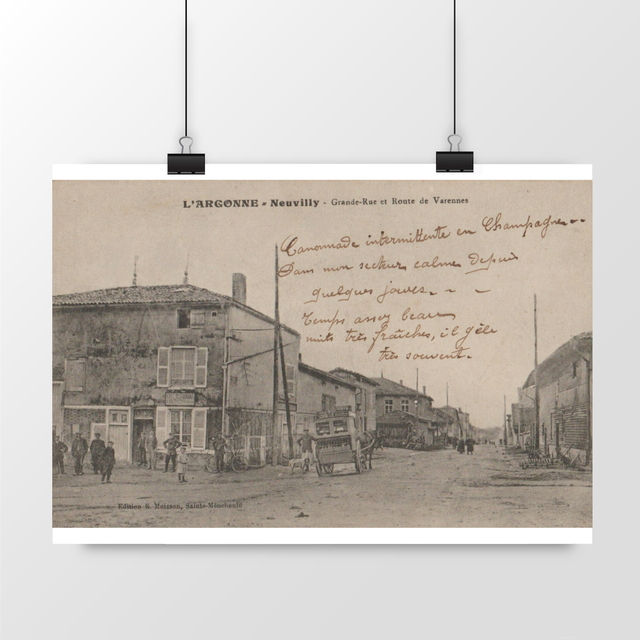 L'ARGONNE - Neuvilly - Grande-Rue et Route de Varennes
Canonnade intermittente en Champagne...
Dans mon secteur calme depuis
quelques jours. - -
Temps assez beau
nuits très fraîches, il gèle
très souvent.
Edition E. Moisson, Sainte-Menehould